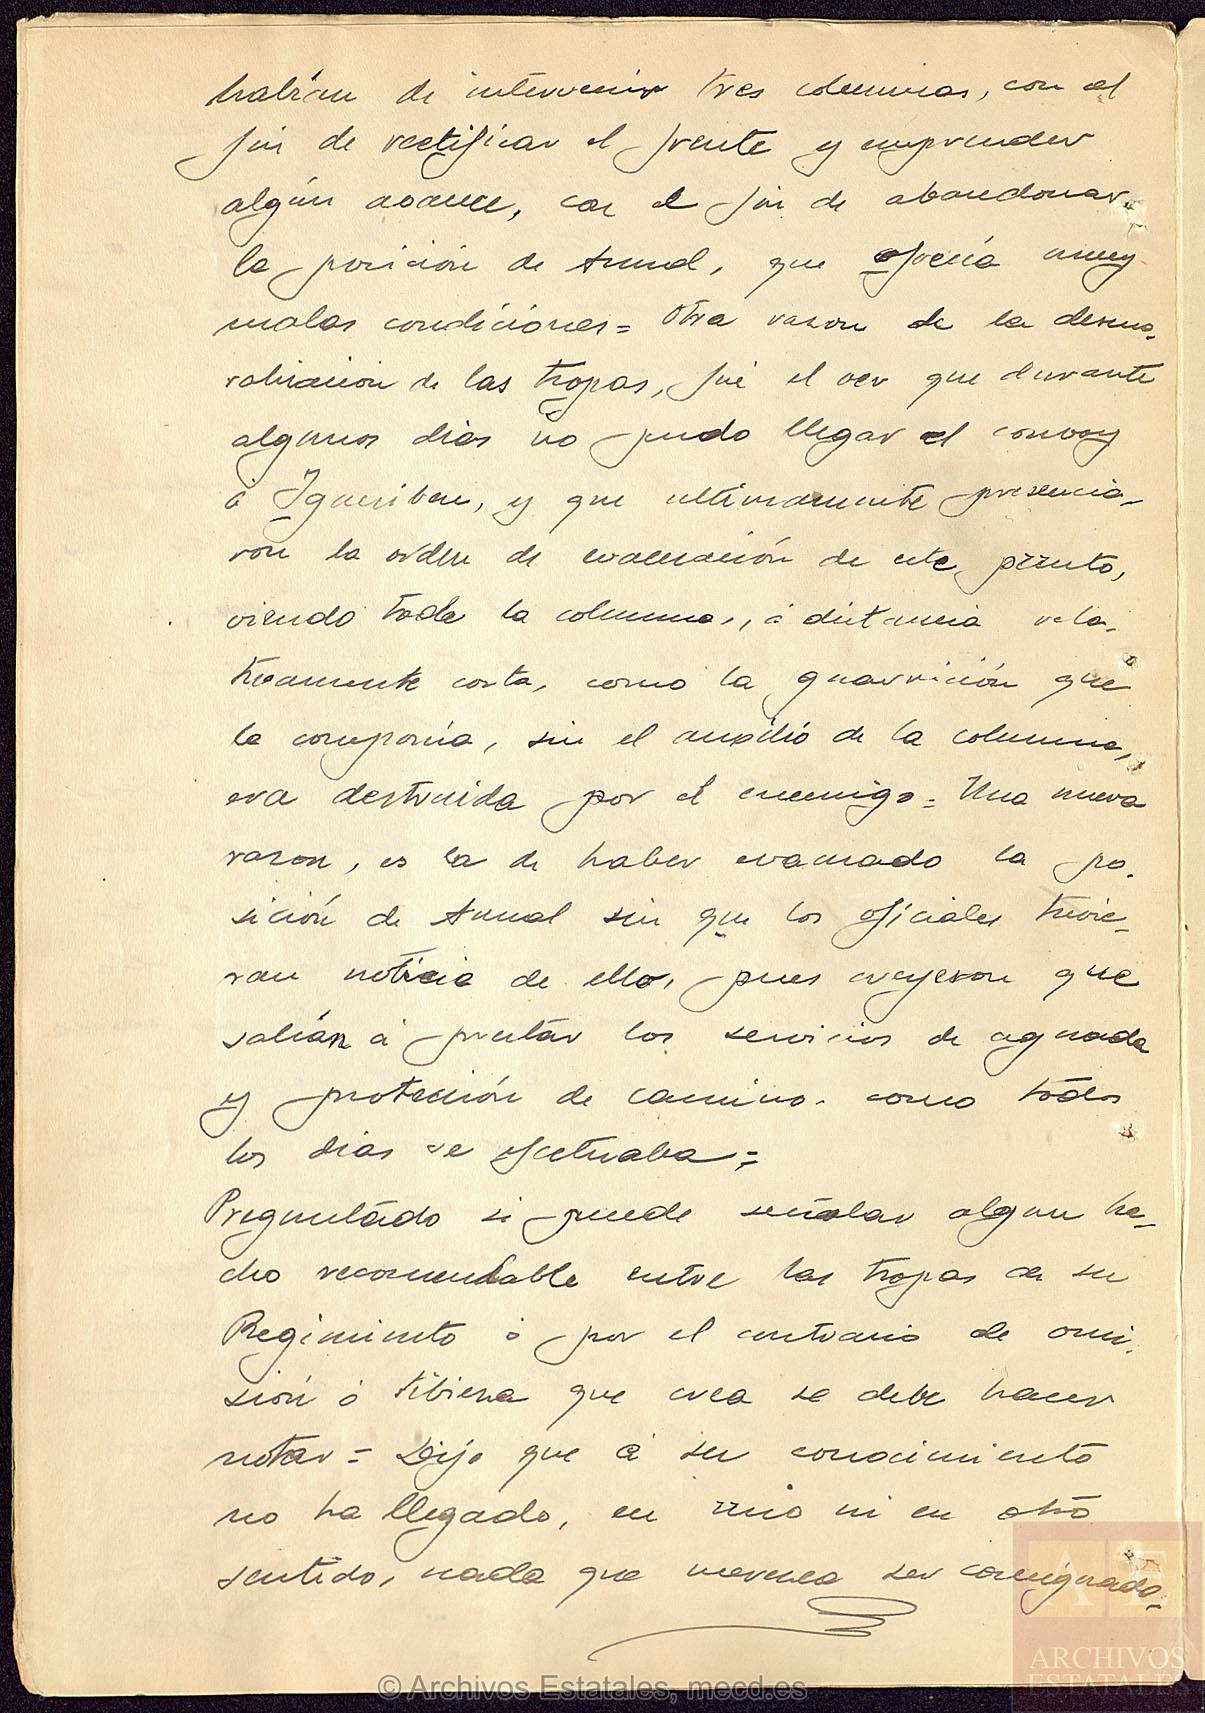 habían de intervenir tres columnas, con el
fin de rectificar el frente y emprender
algún avance, con el fin de abandonar
la posición de Annual, que ofrecía muy
malas condiciones = Otra razon de la desmo-
ralización de las tropas, fué el ver que durante
algunos dias no pudo llegar el convoy
á Igueriben, y que ultimamente presencia-
ron la orden de evacuación de este punto,
viendo toda la columna, á distancia rela-
tivamente corta, como la guarnición que
la componía, sin el auxilio de la columna,
era destruida por el enemigo = Una nueva
razon, es la de haber evacuado la po-
sición de Annual sin que los oficiales tuvie-
ran noticia de ello, pues creyeron que
salían á prestar los servicios de aguada
y protección de camino. como todos
los dias se efectuaba =
Preguntado si puede señalar algun he-
cho recomendable entre las tropas de su
Regimiento ó por el contrario de omi-
sión ó tibieza que crea se debe hacer
notar = Dijo que á su conocimiento
no ha llegado, en uno ni en otro
sentido, nada que merezca ser consignado.-
AE
ARCHIVOS
ESTATALES
© Archivos Estatales, mecd.es